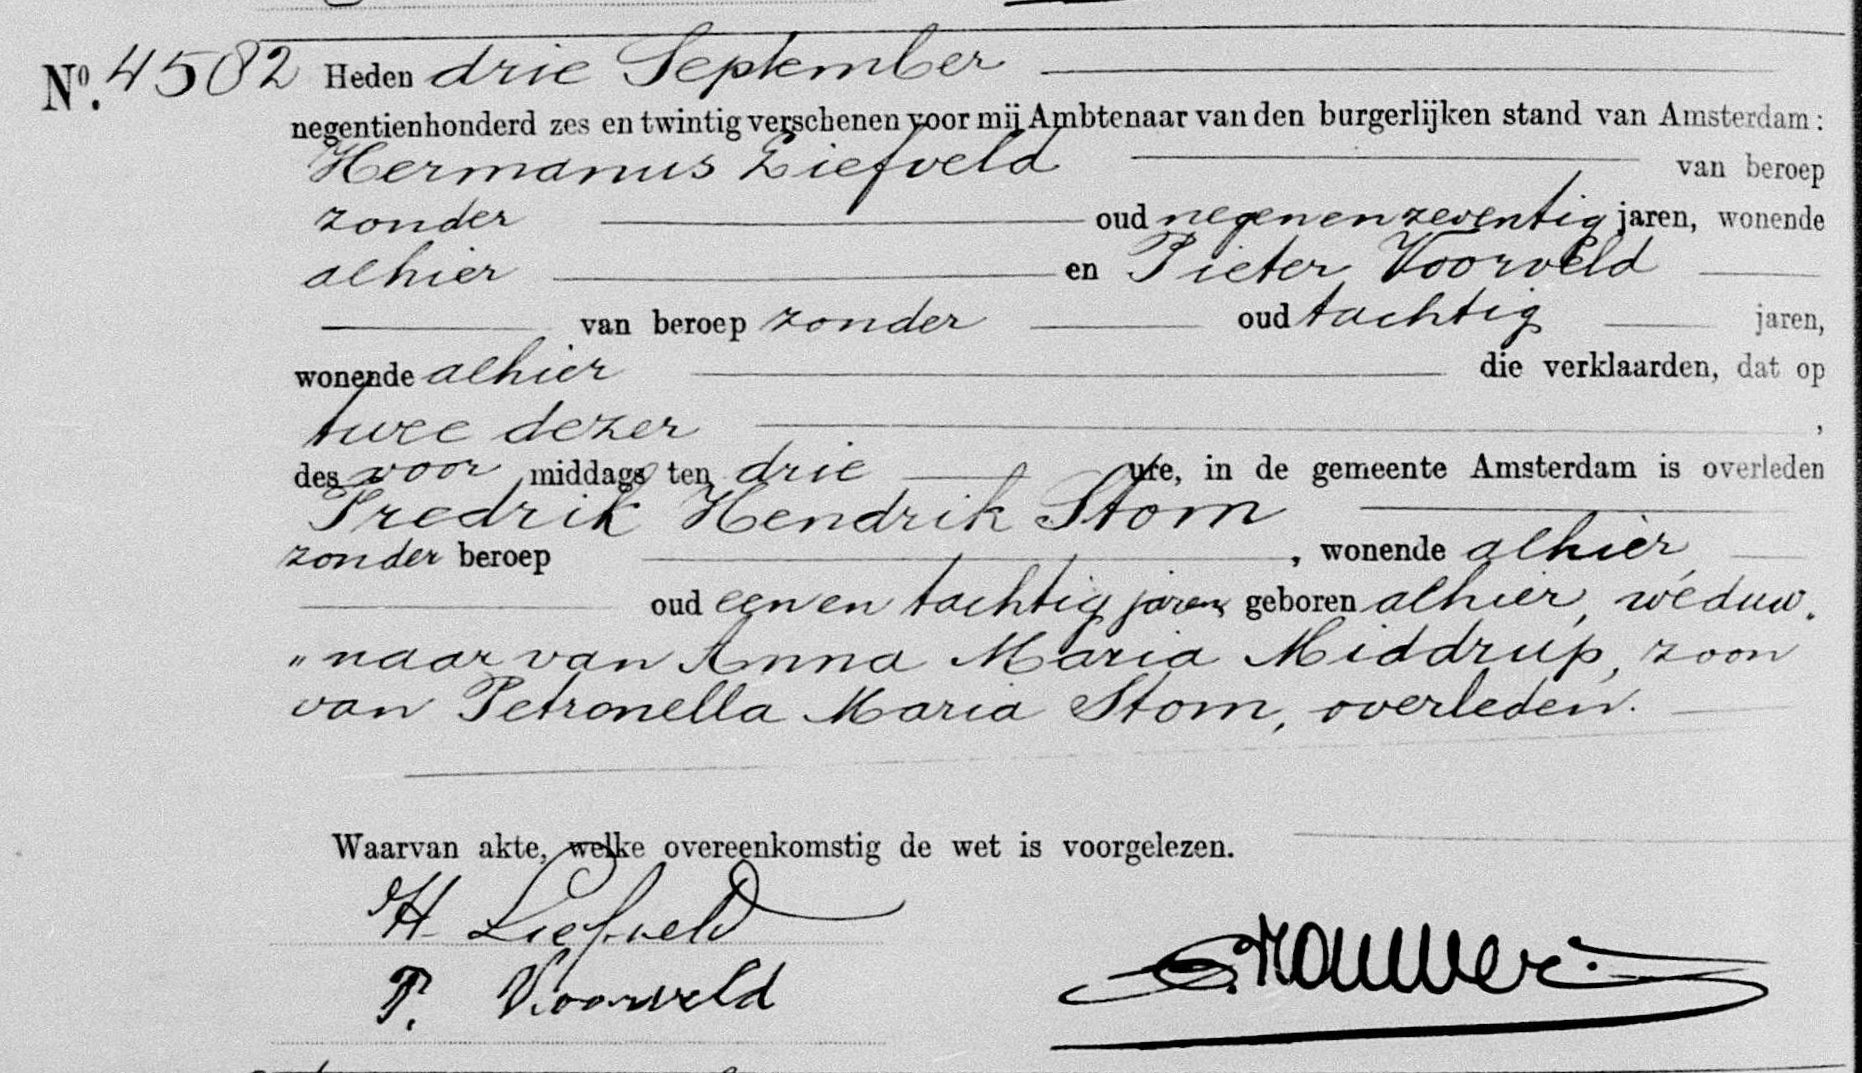 No. 4582 Heden drie September
negentienhonderd zes en twintig verschenen voor mij Ambtenaar van den burgerlijken stand van Amsterdam:
Hermanus Liefveld van beroep
zonder oud negenenzeventig jaren, wonende
alhier en Pieter Voorveld
van beroep zonder oud tachtig jaren,
wonende alhier die verklaarden, dat op
twee dezer ,
des voor middags ten drie ure, in de gemeente Amsterdam is overleden
Fredrik Hendrik Stom
zonder beroep , wonende alhier,
oud eenen tachtig jaren geboren alhier, weduw.
"naar van Anna Maria Middrup, zoon
van Petronella Maria Stom, overleden.
Waarvan akte, welke overeenkomstig de wet is voorgelezen.
H Liefveld
P. Voorveld